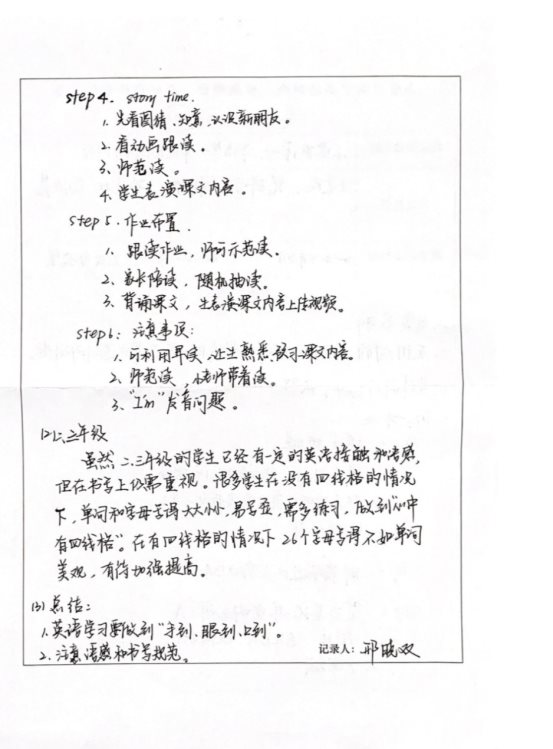 step 4. story time.
1. 先看图猜、知意、认识新朋友。
2. 看动画跟读。
3. 师范读。
4. 学生表演课文内容。
step 5. 作业布置.
1. 跟读作业，师可示范读。
2. 家长陪读，随机抽读。
3. 背诵课文，生表演课文内容上传视频。
step 6. 注意事项：
1. 可利用早读，让生熟悉预习课文内容。
2. 师范读，小老师带着读。
3. "I'm"发音问题。
(2)二、三年级
虽然二、三年级的学生已经有一定的英语接触和语感，
但在书写上仍需重视。很多学生在没有四线格的情况
下，单词和字母写得大大小小，易写歪，需多练习，做到"心中
有四线格"。在有四线格的情况下26个字母写得不如单词
美观，有待加强提高。
(3)总结：
1. 英语学习要做到"手到、眼到、口到"。
2. 注意语感和书写规范。
记录人：邢晓双